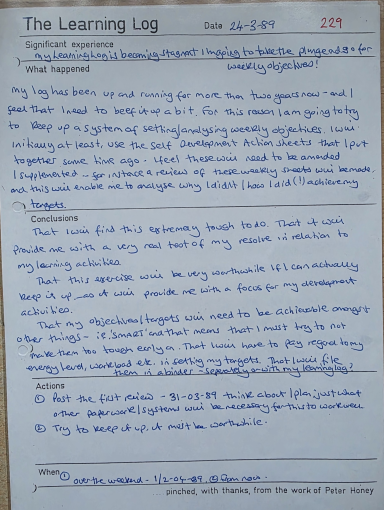 The Learning Log Date 24-3-89 229
Significant experience
my learning log is becoming stagnant I'm going to take the plunge & go for
weekly objectives!
What happened
My log has been up and running for more than two years now - and I
feel that I need to beef it up a bit. For this reason I am going to try
to keep up a system of setting/analysing weekly objectives. I will
initially at least, use the Self Development Action sheets that I put
together some time ago. I feel these will need to be amended
/ supplemented - for instance a review of these weekly sheets will be made
and this will enable me to analyse why I didn't / how I did (!) achieve my
targets.
Conclusions
That I will find this extremely tough to do. That it will
provide me with a very real test of my resolve in relation to
my learning activities.
That this exercise will be very worthwhile if I can actually
keep it up - as it will provide me with a focus for my development
activities.
That my objectives/targets will need to be achievable amongst
other things - ie 'SMART' and that means that I must try to not
make them too tough early on. That I will have to pay regard to my
energy level, workload etc. in setting my targets. That I will file
them in a binder - separately or with my learning log?
Actions
① Post the first review - 31-03-89 think about / plan just what
other paperwork/systems will be necessary for this to work well
② Try to keep it up. It must be worthwhile.
When ① over the weekend - 1/2-04-89, ② from now.
... pinched, with thanks, from the work of Peter Honey